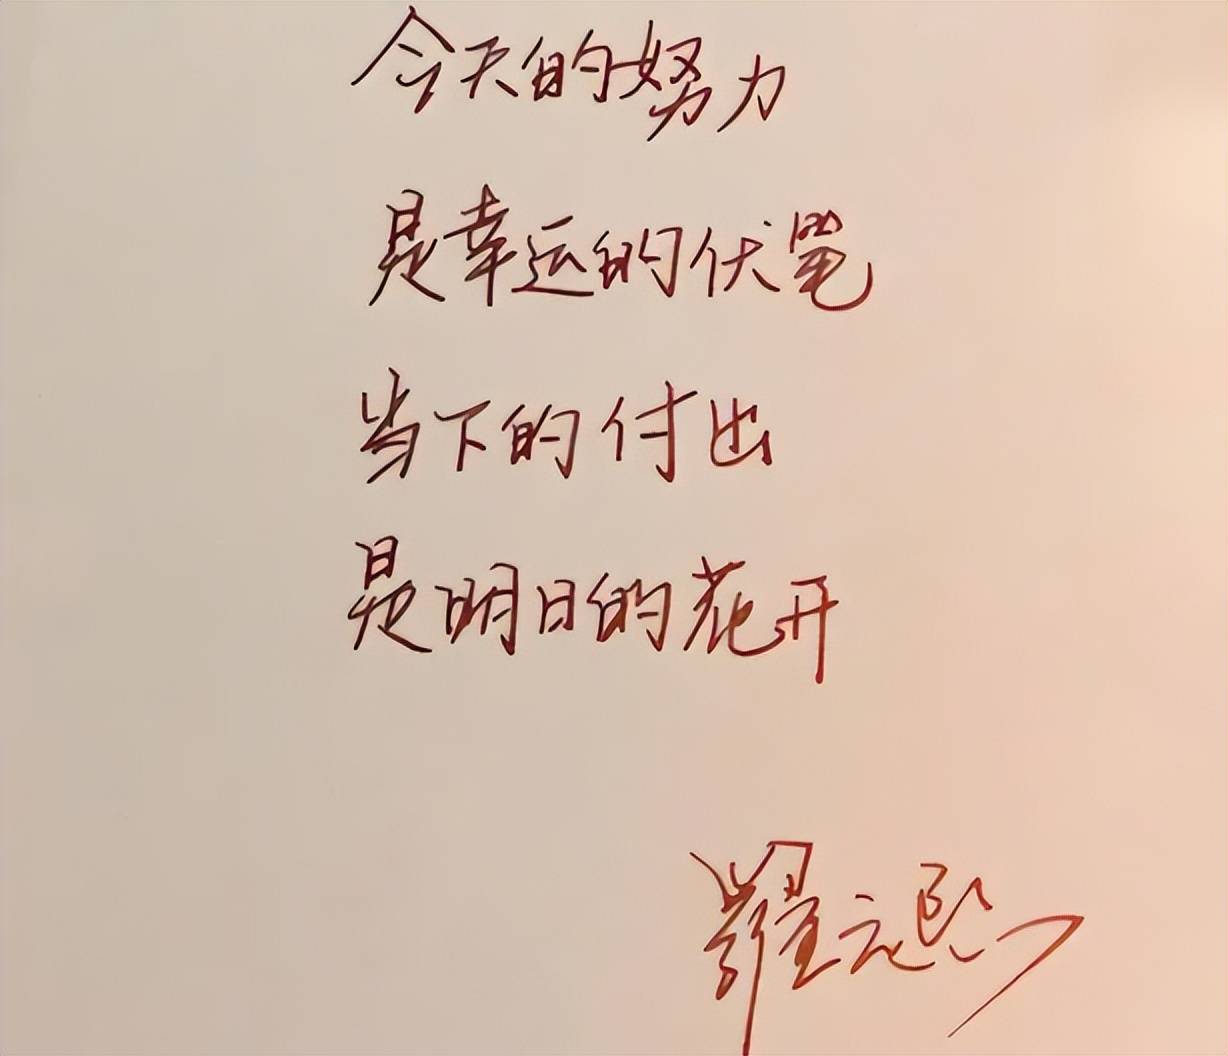 今天的努力
是幸运的伏笔
当下的付出
是明日的花开
羅云熙